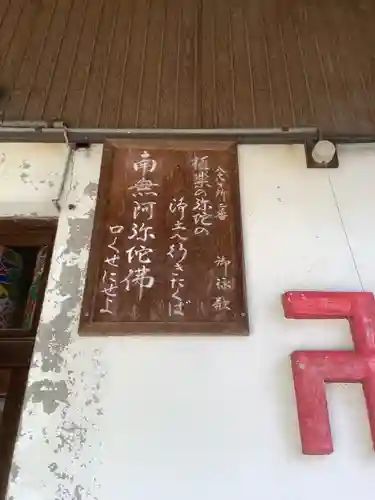 御詠歌
極楽の弥陀の
浄土へ行きたくば
南無阿弥陀佛
口くせにせよ